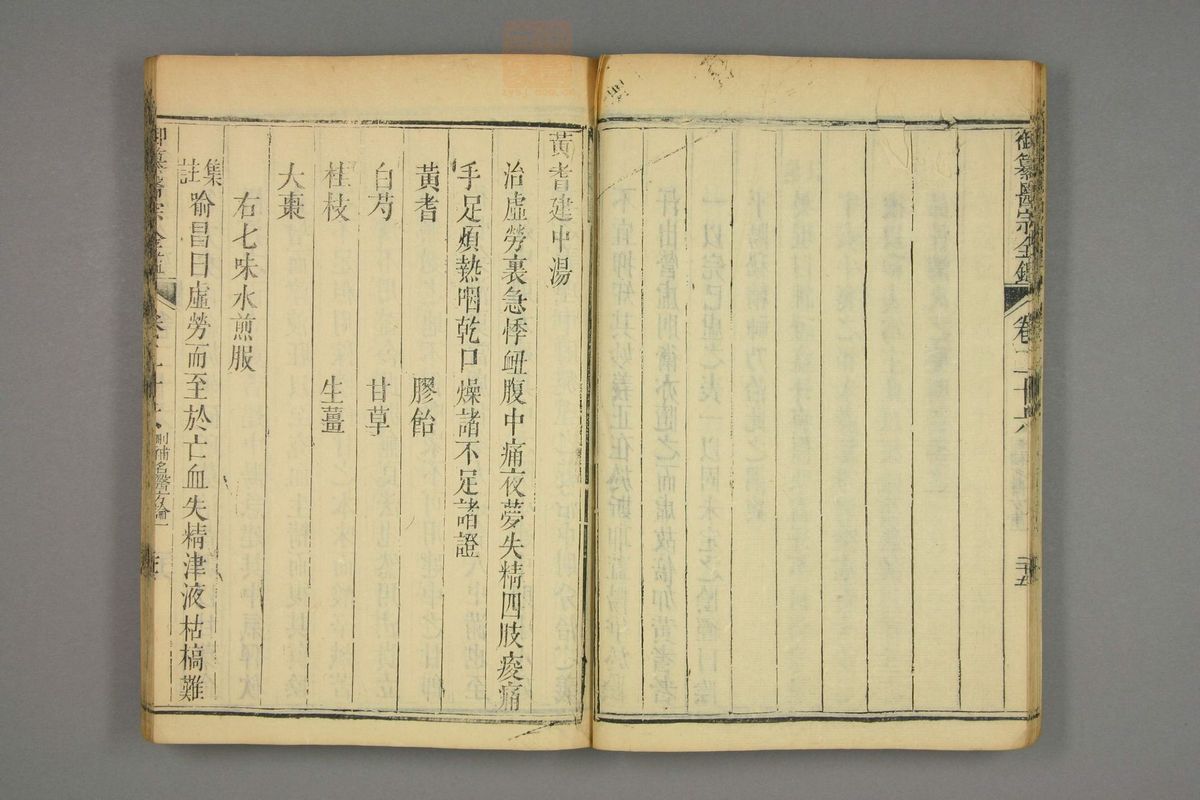 御纂醫宗金鑑 卷二十六 二十五
黃耆建中湯
治虛勞裏急悸衄腹中痛夜夢失精四肢痠痛
手足煩熱咽乾口燥諸不足諸證
黃耆 膠飴
白芍 甘草
桂枝 生薑
大棗
右七味水煎服
集註喻昌曰虛勞而至於亡血失精津液枯槁難
御纂醫宗金鑑 卷二十六 刪補名醫方論一